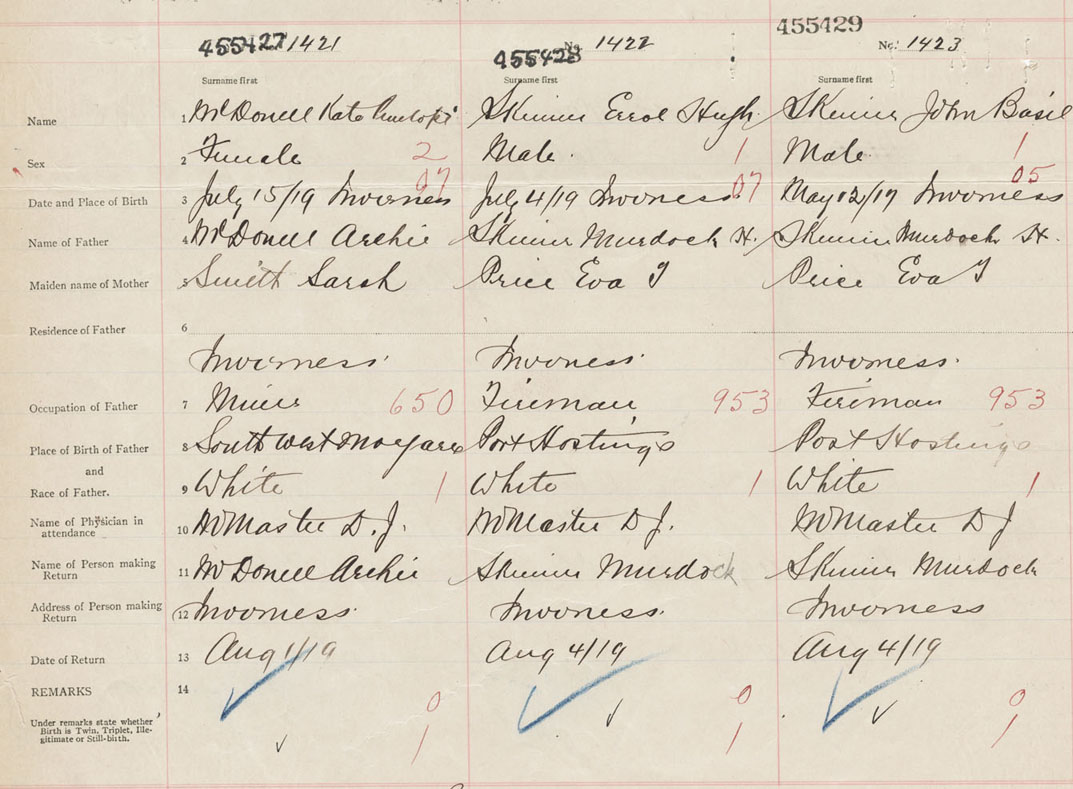 455427 1421 455428 No. 1422 455429 No. 1423
Surname first Surname first Surname first
Name 1 McDonell Kate Skinner Errol Hugh Skinner John Basil
Sex 2 Female 2 Male 1 Male 1
07 07 05
Date and Place of Birth 3 July 15/19 Inverness July 4/19 Inverness May 12/17 Inverness
Name of Father 4 McDonell Archie Skinner Murdock H. Skinner Murdock H.
Maiden name of Mother 5 Smith Sarah Price Eva J Price Eva J
Residence of Father 6
Inverness Inverness Inverness
Occupation of Father 7 Miner 650 Fireman 953 Fireman 953
Place of Birth of Father 8 South West Margaree Port Hastings Port Hastings
and
Race of Father. 9 White 1 White 1 White 1
Name of Physician in
attendance 10 McMaster D.J. McMaster D J. McMaster D J
Name of Person making
Return 11 McDonell Archie Skinner Murdock Skinner Murdock
Address of Person making
Return 12 Inverness Inverness Inverness
Date of Return 13 Aug 1/19 Aug 4/19 Aug 4/19
REMARKS 14
0 0 0
Under remarks state whether
Birth is Twin, Triplet, Ille-
gitimate or Still-birth.
1 1 1